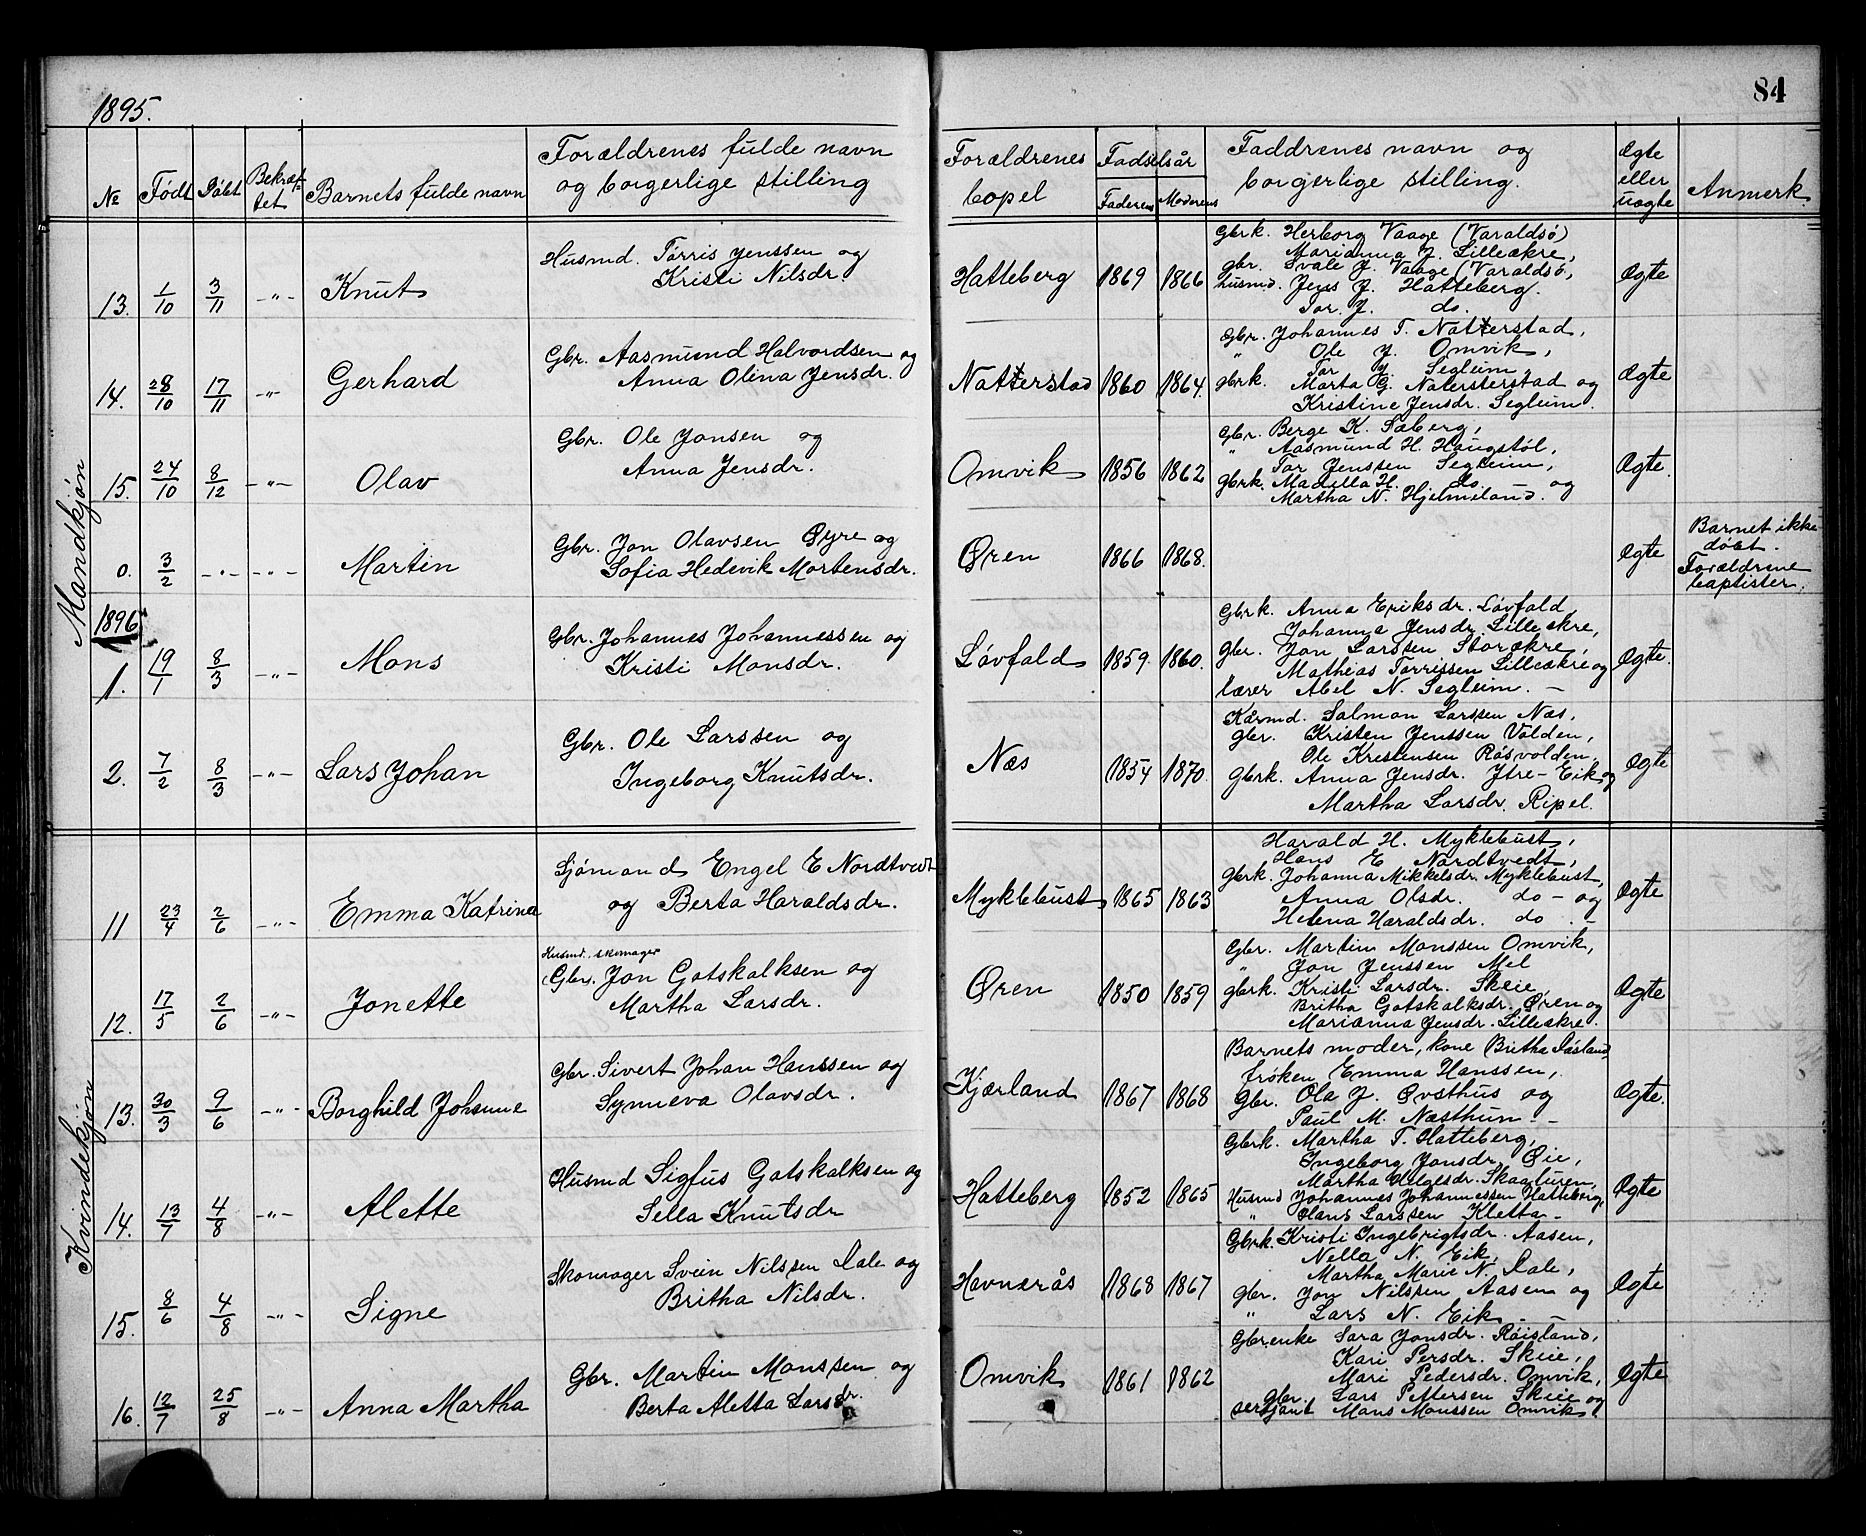 1895.
84
№ Født Døbt Bekræftet Barnets fulde navn Forældrenes fulde navn og borgerlige stilling Forældrenes bopel Fødselsår Faderens Moderens Faddrenes navn og borgerlige stilling. Ægte eller uægte Anmerk.
Mandkjøn
13. 1/10 3/11 -"- Knut
Husmd. Tørris Jenssen og
Kristi Nilsdr.
Hatteberg 1869 1866
Gbrk. Herborg Vaage (Varaldsø)
Marianna J. Lilleækre,
gbr. Svale J. Vaage (Varaldsø,
husmd. Jens J. Hatteberg.
Tor J. do.
Ægte
14. 28/10 17/11 -"- Gerhard
Gbr. Aasmund Halvordsen og
Anna Olina Jensdr.
Natterstad 1860 1864.
Gbr. Johannes T. Natterstad,
" Ole J. Omvik,
Tor J. Segleim,
gbrk. Marta G. Natersterstad og
Kristine Jensdr. Segleim.
Ægte
15. 24/10 8/12 -"- Olav
Gbr. Ole Jonsen og
Anna Jensdr.
Omvik 1856 1862
Gbr. Berge K. Sæberg,
" Aasmund H. Haugstøl,
Tor Jenssen Segleim,
gbrk. Madella H. do. og
Martha N. Hjelmeland.
Ægte.
0. 3/2 -"- -"- Martin
Gbr. Jon Olavsen Øyre og
Sofia Hedevik Mortensdr.
Øren 1866 1868.
Ægte
Barnet ikke
døbt.
Forældrene
baptister.
1896
1. 19/1 8/3 -"- Mons
Gbr. Johannes Johannessen og
Kristi Monsdr.
Løvfald 1859. 1860.
Gbrk. Anna Eriksdr. Løvfald,
Johanna Jensdr. Lilleækre,
gbr. Jon Larssen Storækre,
Mathias Tørrissen Lilleækre og
lærer Abel N. Segleim. -
Ægte.
2. 7/2 8/3 -"- Lars Johan
Gbr. Ole Larssen og
Ingeborg Knutsdr.
Næs 1854 1870.
Kårmd. Salmon Larssen Næs,
gbr. Kristen Jenssen Valden,
Ole Kristensen Røsvolden.
Gbrk. Anna Jensdr. Ytre-Eik og
Martha Larsdr. Ripel.
Ægte
Kvindekjøn
11 23/4 2/6 -"- Emma Katrina
Sjømand Engel E Nordtvedt
og Berta Haraldsdr.
Myklebust 1865 1863
Harald H. Myklebust,
Hans E Nordtvedt,
Gbrk. Johanna Mikkelsdr. Myklebust,
Anna Olsdr. do - og
Helena Haraldsdr. do. -
Ægte
12. 17/5 2/6 -"- Jonette
Husmd. skomager
Gbr. Jon Gotskalksen og
Martha Larsdr.
Øren 1850 1859
Gbr. Martin Monssen Omvik,
" Jon Jenssen Mel
gbrk. Kristi Larsdr. Skeie,
Britha Gotskalksdr. Øren og
Marianna Jensdr. Lilleækre.
Ægte
13. 30/3 9/6 -"- Borghild Johanne
Gbr. Sivert Johan Hanssen og
Synneva Olavsdr.
Kjærland 1867 1868
Barnets moder, kone Britha Dåsland,
frøken Emma Hanssen,
Gbr. Ola J. Øvsthus og
Paul M. Næsthun - -
Ægte.
14. 13/7 4/8 -"- Alette
Husmd Sigfus Gotskalksen og
Sella Knutsdr
Hatteberg 1852 1865
Gbrk. Martha T. Hatteberg,
Ingeborg Jonsdr. Øie,
Martha Helgesdr. Skaglunen,
Husmd Johannes Johannessen Hatteberg,
" Hans Larssen Kletta -
Ægte
15. 8/6 4/8 -"- Signe
Skomager Svein Nilssen Dale og
Britha Nilsdr.
Havnærås 1868 1867
Gbrk. Kristi Ingebrigtsdr. Aasen,
Nella N. Eik,
Martha Marie N. Dale,
gbr. Jon Nilssen Aasen og
" Lars N. Eik - -
Ægte
16. 12/7 25/8 -"- Anna Martha
Gbr. Martin Monssen og
Berta Aletta Larsdr.
Omvik 1861 1862
Gbrenke Sara Jonsdr. Røisland,
Kari Persdr. Skeie,
Mari Pedersdr. Omvik,
gbr. Lars Pettersen Skeie og
serjant Mons Monssen Omvik.
Ægte